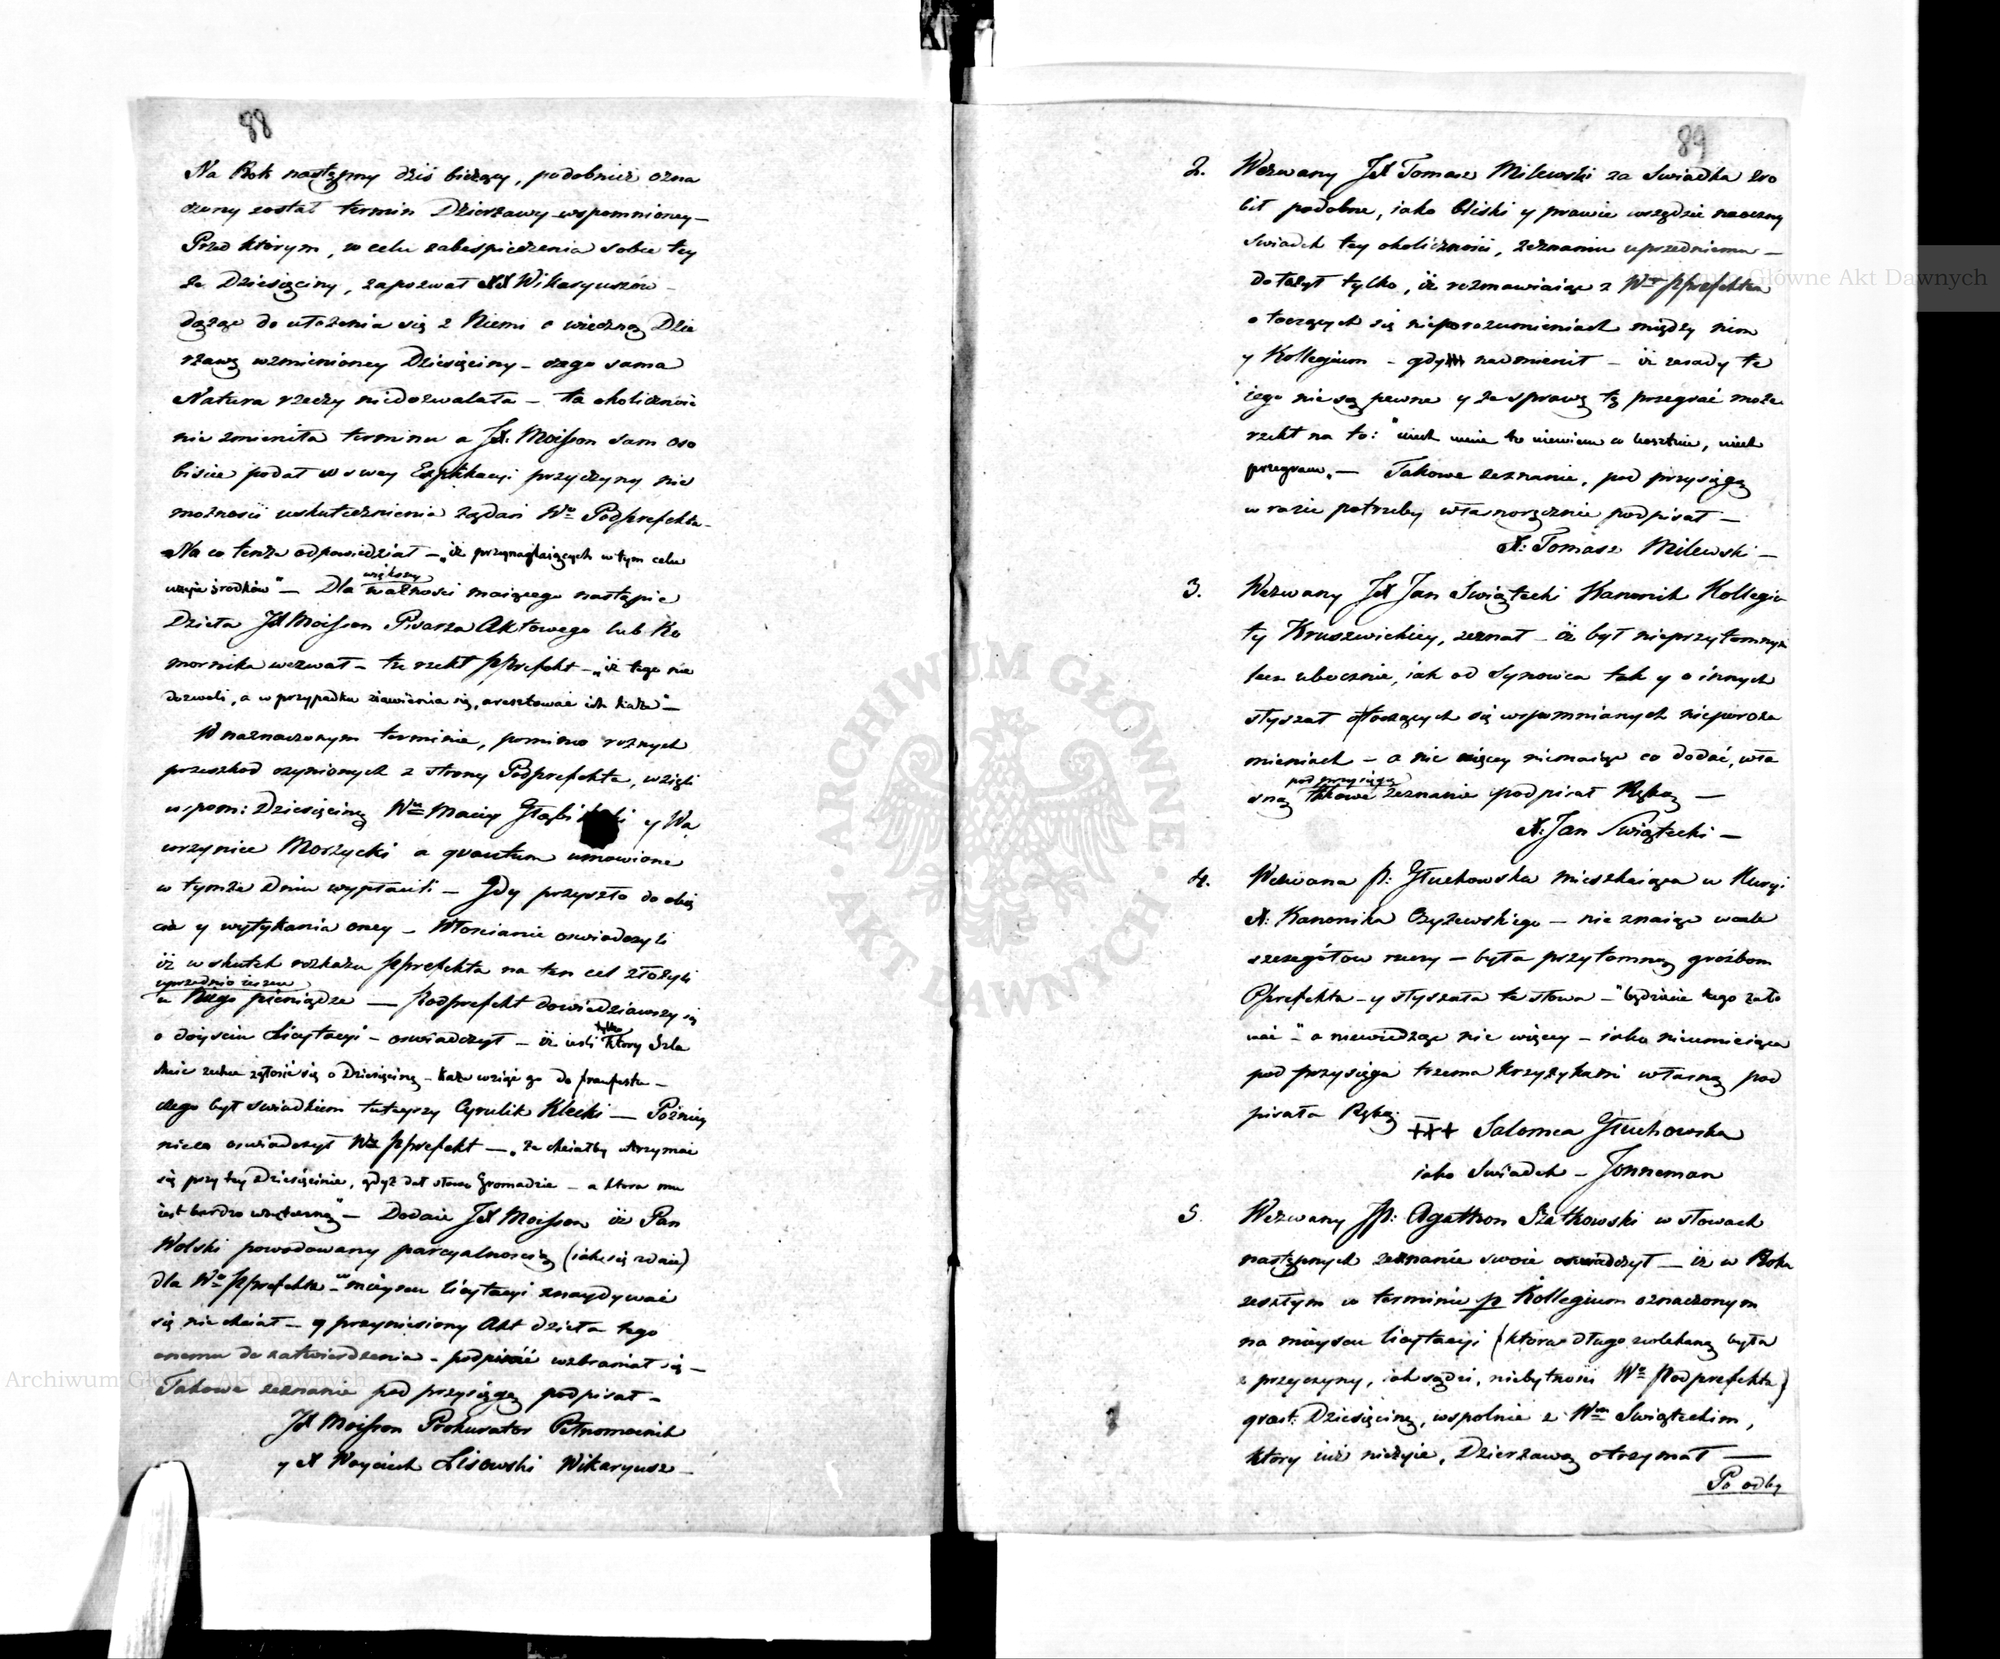 88
Na Rok następny dziś bieżący, podobnież ozna
czony został termin Dzierżawy wspomnioney –
Przed którym, w celu zabespieczenia sobie tey
że Dziesięciny, zapozwał XX Wikaryuszów –
dążąc do ułożenia się z Niemi o wieczną Dzie
rżawę wzmienioney Dziesięciny – czego sama
Natura rzeczy niedozwalała – ta okoliczność
nie zmieniła terminu a JX. Moisson sam oso
biście podał w swey Explikacyi przyczyny nie
możności uskutecznienia żądań Wo Podprefekta –
Na co tenże odpowiedział – „iż przynaglaiących w tym celu
użyie środków" – Dla większey ważności maiącego nastąpić
Dzieła JX Moisson Pisarza Aktowego lub Ko
mornika wezwał – tu rzekł pprefekt – „iż tego nie
dozwoli, a w przypadku ziawienia się, aresztować ich każe" –
W naznaczonym terminie, pomimo roznych
przeszkod czynionych z strony Podprefekta, wzięli
wspom: Dziesięcinę Wni Maciey i y Wa
wrzyniec Morzycki a quantum umowione
w tymże dniu wypłacili – Gdy przyszło do obię
cia y wytykania oney – Włoscianie oswiadczyli
iż w skutek rozkazu pprefekta na ten cel złożyli
uprzednio ieszcze u Niego pieniądze — Podprefekt dowiedziawszy się
o doyściu Licytacyi – oswiadczył – iż ieśli tylko ktory Szla
chcic zechce zgłosić się o Dziesięcinę – każe wziąć go do
czego był swiadkiem tuteyszy Cyrulik Klecki — Pożniey
nieco oswiadczył Wny pprefekt — „że chciałby utrzymać
się przy tey Dziesięcinie, gdyż dał słowo Gromadzie – a ktora mu
iest bardzo" – Dodaie JX Moisson iż Pan
Wolski powodowany parcyalnością (iak się zdaie)
dla Wo pprefekta – w mieyscu licytacyi znaydywać
się nie chciał – y przyniesiony Akt dzieła tego
onemu do zatwierdzenia – podpisać wzbraniał się –
Takowe zeznanie pod przysięgą podpisał –
JX Moisson Prokurator Pełnomocnik
y X Woyciech Lisowski Wikaryusz –
89
2. Wezwany JX Tomasz Milewski za Swiadka zro
bił podobne, iako bliski y prawie wszędzie naoczny
swiadek tey okoliczności, zeznaniu uprzedniemu –
dołożył tylko, iż rozmawiaiąc z Wm Pprefektem
o toczących się nieporozumieniach między nim
y Kollegium – gdy nadmienił – iż zasady te
jego nie są pewne y że sprawę tę przegrać może
rzekł na to: "niech mnie to niewiem co kosztuie, niech
przegram„ — Takowe zeznanie, pod przysięgą
w razie potrzeby własnoręcznie podpisał –
X: Tomasz Milewski –
3. Wezwany JX Jan Swiątecki Kanonik Kollegia
ty Kruszwickiey, zeznał – iż był nieprzytomnym
lecz ubocznie, iak od Synowca tak y o innych
słyszał o toczących się wspomnianych nieporozu
mieniach – a nic więcey niemaiąc co dodać, wła
sną pod przysięgą takowe zeznanie podpisał Ręką —
X: Jan Swiątecki –
4. Wezwana P: Głuchowska mieszkaiąca w Kuryi
X: Kanonika Czyżewskiego – nie znaiąc wcale
szczegółow rzeczy – była przytomną groźbom
Pprefekta – y słyszała te słowa – "będziecie tego żało
wać –" a niewiedząc nic więcey – iako nieumieiąca
pod przysięgą trzema krzyżykami własną pod
pisała Ręką.
+++ Salomea Głuchowska
iako Swiadek – Jonneman
5. Wezwany JP: Agathon Szatkowski w słowach
następnych zeznanie swoie oswiadczył — iż w Roku
zeszłym w terminie p Kollegium oznaczonym
na mieyscu licytacyi (która długo zwlekaną była
z przyczyny, iak sądzi, niebytności Wo Podprefekta)
quaest: Dziesięcinę, wspolnie z Wm Swiąteckim,
ktory iuż nieżyie, Dzierżawą otrzymał —
Po odby